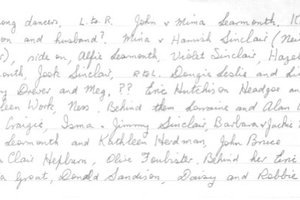 ong dancers, L. to R. John & Mima Learmonth, K
on and husband? Mina & Hamish Sinclair (Nei
), ride on, Alfie Learmonth, Violet Sinclair, Hazel
outh, Jook Sinclair, R to L. Dougie Leslie and hu
y Drever and Meg. ?? Eric Hutchison Headgoe an
leen Work Ness. Behind them Lorraine and Alan
Craigie, Isma & Jimmy Sinclair, Barbara & Jackie
Learmonth and Kathleen Herdman, John Bruce
a Clair Hepburn, Olive Foubister. Behind her Eric
a Grout, Donald Sandison, Davay and Robbie